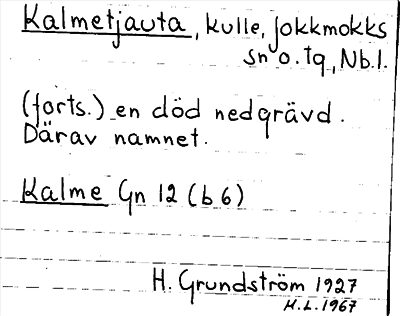 Kalmetjauta, kulle, Jokkmokks
sn o. tg, Nb.l.
(forts.) en död nedgrävd.
Därav namnet.
Kalme Gn 12 (b 6)
H. Grundström 1927
H.L. 1967